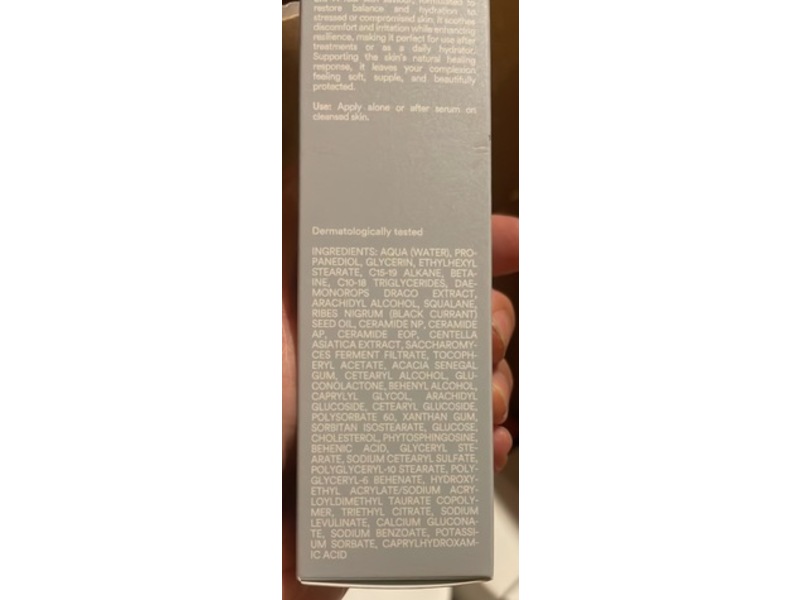 restore balance and hydration to
stressed or compromised skin, it soothes
discomfort and irritation while enhancing
resilience, making it perfect for use after
treatments or as a daily hydrator.
Supporting the skin's natural healing
response, it leaves your complexion
feeling soft, supple, and beautifully
protected.
Use: Apply alone or after serum on
cleansed skin.
Dermatologically tested
INGREDIENTS: AQUA (WATER), PRO-
PANEDIOL, GLYCERIN, ETHYLHEXYL
STEARATE, C15-19 ALKANE, BETA-
INE, C10-18 TRIGLYCERIDES, DAE-
MONOROPS DRACO EXTRACT,
ARACHIDYL ALCOHOL, SQUALANE,
RIBES NIGRUM (BLACK CURRANT)
SEED OIL, CERAMIDE NP, CERAMIDE
AP, CERAMIDE EOP, CENTELLA
ASIATICA EXTRACT, SACCHAROMY-
CES FERMENT FILTRATE, TOCOPH-
ERYL ACETATE, ACACIA SENEGAL
GUM, CETEARYL ALCOHOL, GLU-
CONOLACTONE, BEHENYL ALCOHOL,
CAPRYLYL GLYCOL, ARACHIDYL
GLUCOSIDE, CETEARYL GLUCOSIDE,
POLYSORBATE 60, XANTHAN GUM,
SORBITAN ISOSTEARATE, GLUCOSE,
CHOLESTEROL, PHYTOSPHINGOSINE,
BEHENIC ACID, GLYCERYL STE-
ARATE, SODIUM CETEARYL SULFATE,
POLYGLYCERYL-10 STEARATE, POLY-
GLYCERYL-6 BEHENATE, HYDROXY-
ETHYL ACRYLATE/SODIUM ACRY-
LOYLDIMETHYL TAURATE COPOLY-
MER, TRIETHYL CITRATE, SODIUM
LEVULINATE, CALCIUM GLUCONA-
TE, SODIUM BENZOATE, POTASSI-
UM SORBATE, CAPRYLHYDROXAM-
IC ACID